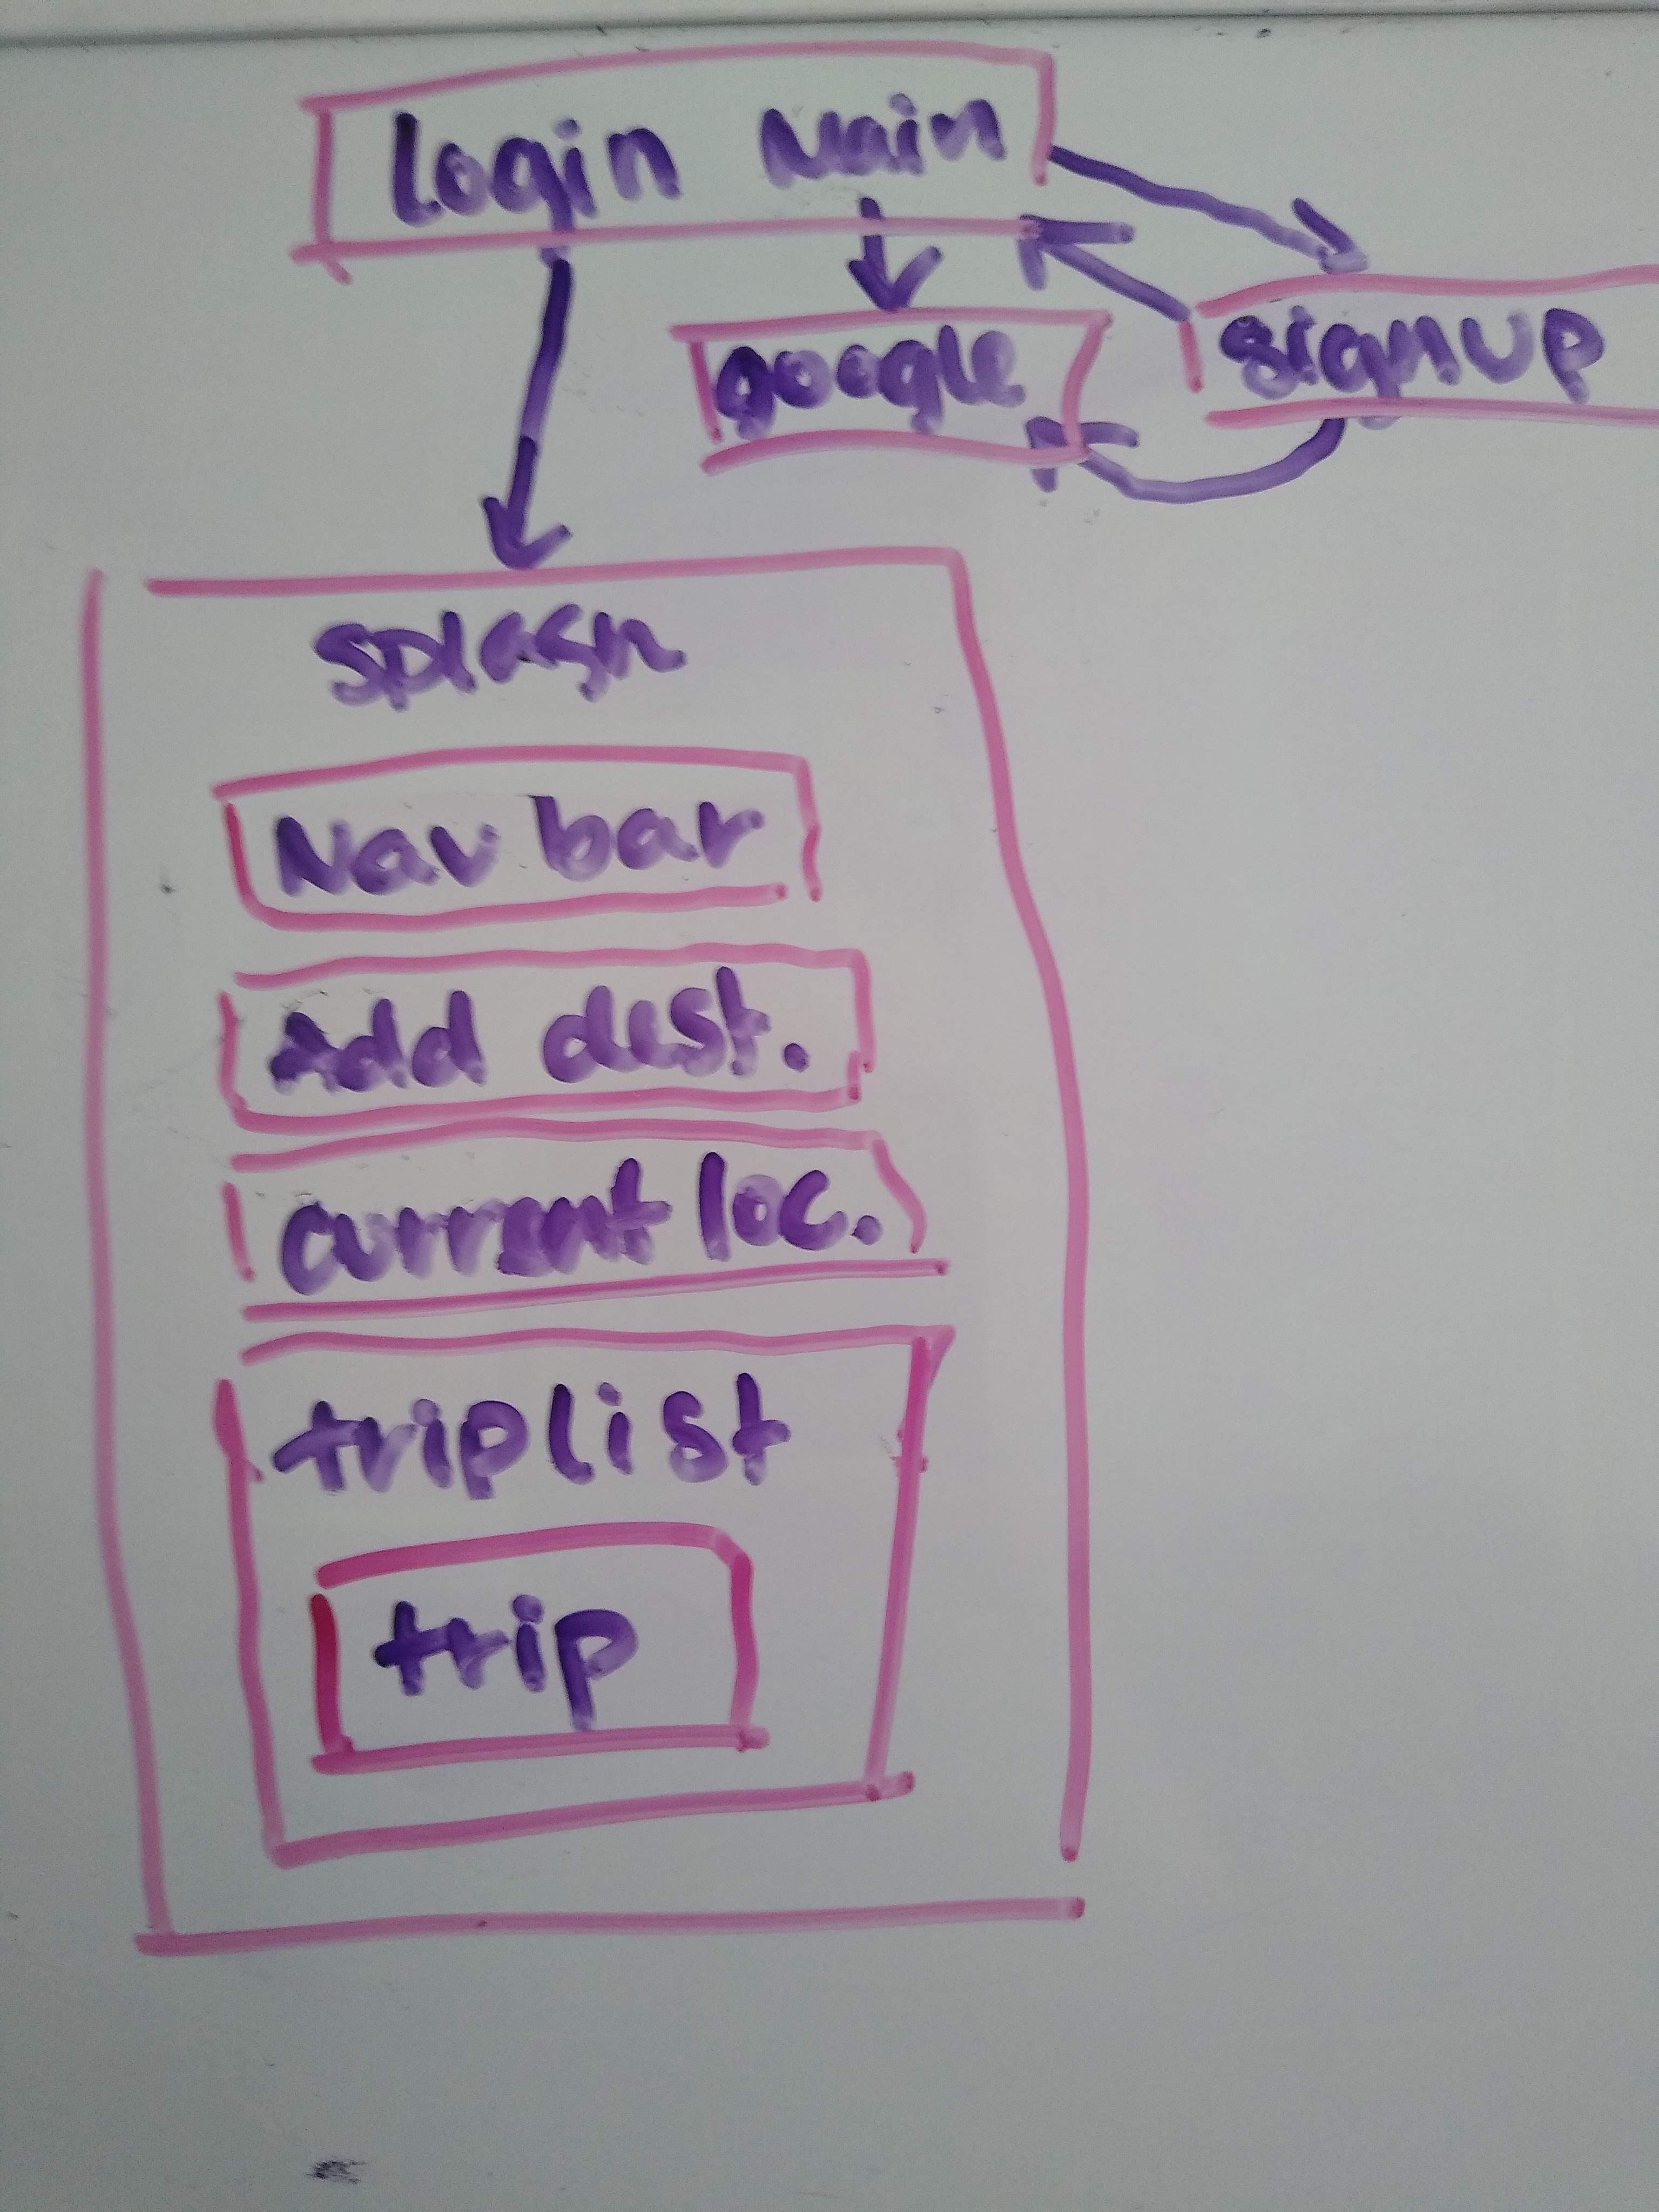 Login Main
google
signup
splash
Nav bar
Add dest.
current loc.
triplist
trip